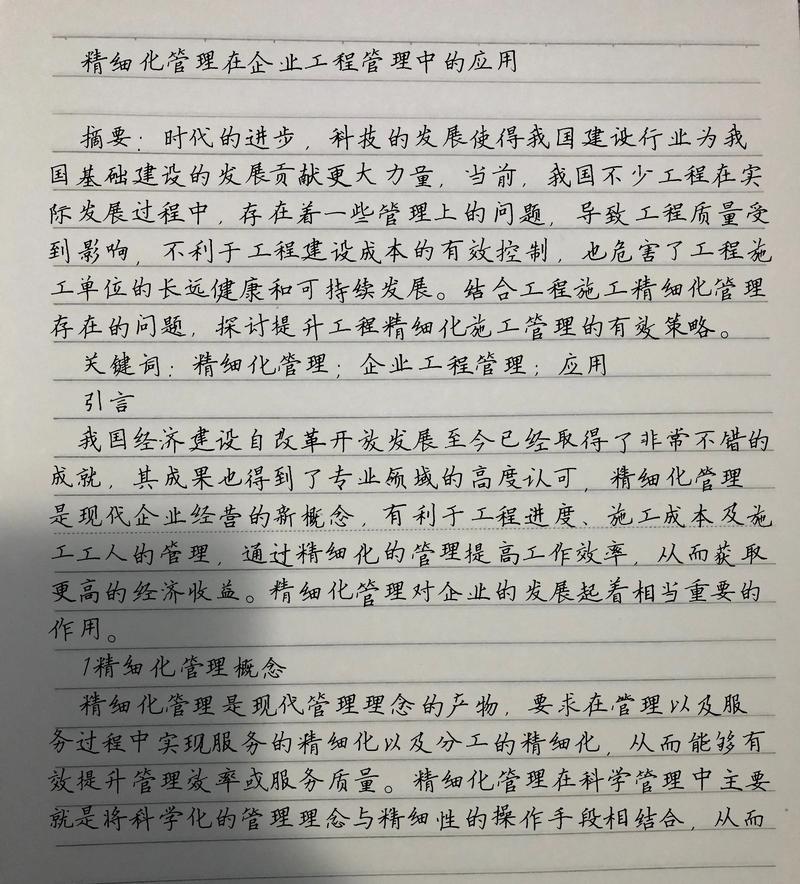 精细化管理在企业工程管理中的应用
摘要：时代的进步，科技的发展使得我国建设行业为我
国基础建设的发展贡献更大力量，当前，我国不少工程在实
际发展过程中，存在着一些管理上的问题，导致工程质量受
到影响，不利于工程建设成本的有效控制，也危害了工程施
工单位的长远健康和可持续发展。结合工程施工精细化管理
存在的问题，探讨提升工程精细化施工管理的有效策略。
关键词：精细化管理；企业工程管理；应用
引言
我国经济建设自改革开放发展至今已经取得了非常不错的
成就，其成果也得到了专业领域的高度认可，精细化管理
是现代企业经营的新概念，有利于工程进度、施工成本及施
工工人的管理，通过精细化的管理提高工作效率，从而获取
更高的经济收益。精细化管理对企业的发展起着相当重要的
作用。
1精细化管理概念
精细化管理是现代管理理念的产物，要求在管理以及服
务过程中实现服务的精细化以及分工的精细化，从而能够有
效提升管理效率或服务质量。精细化管理在科学管理中主要
就是将科学化的管理理念与精细性的操作手段相结合，从而